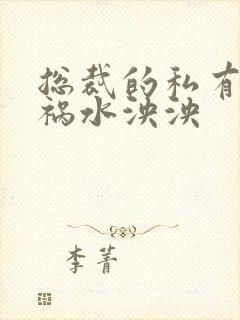 总裁的私有
祸水泱泱
李菁